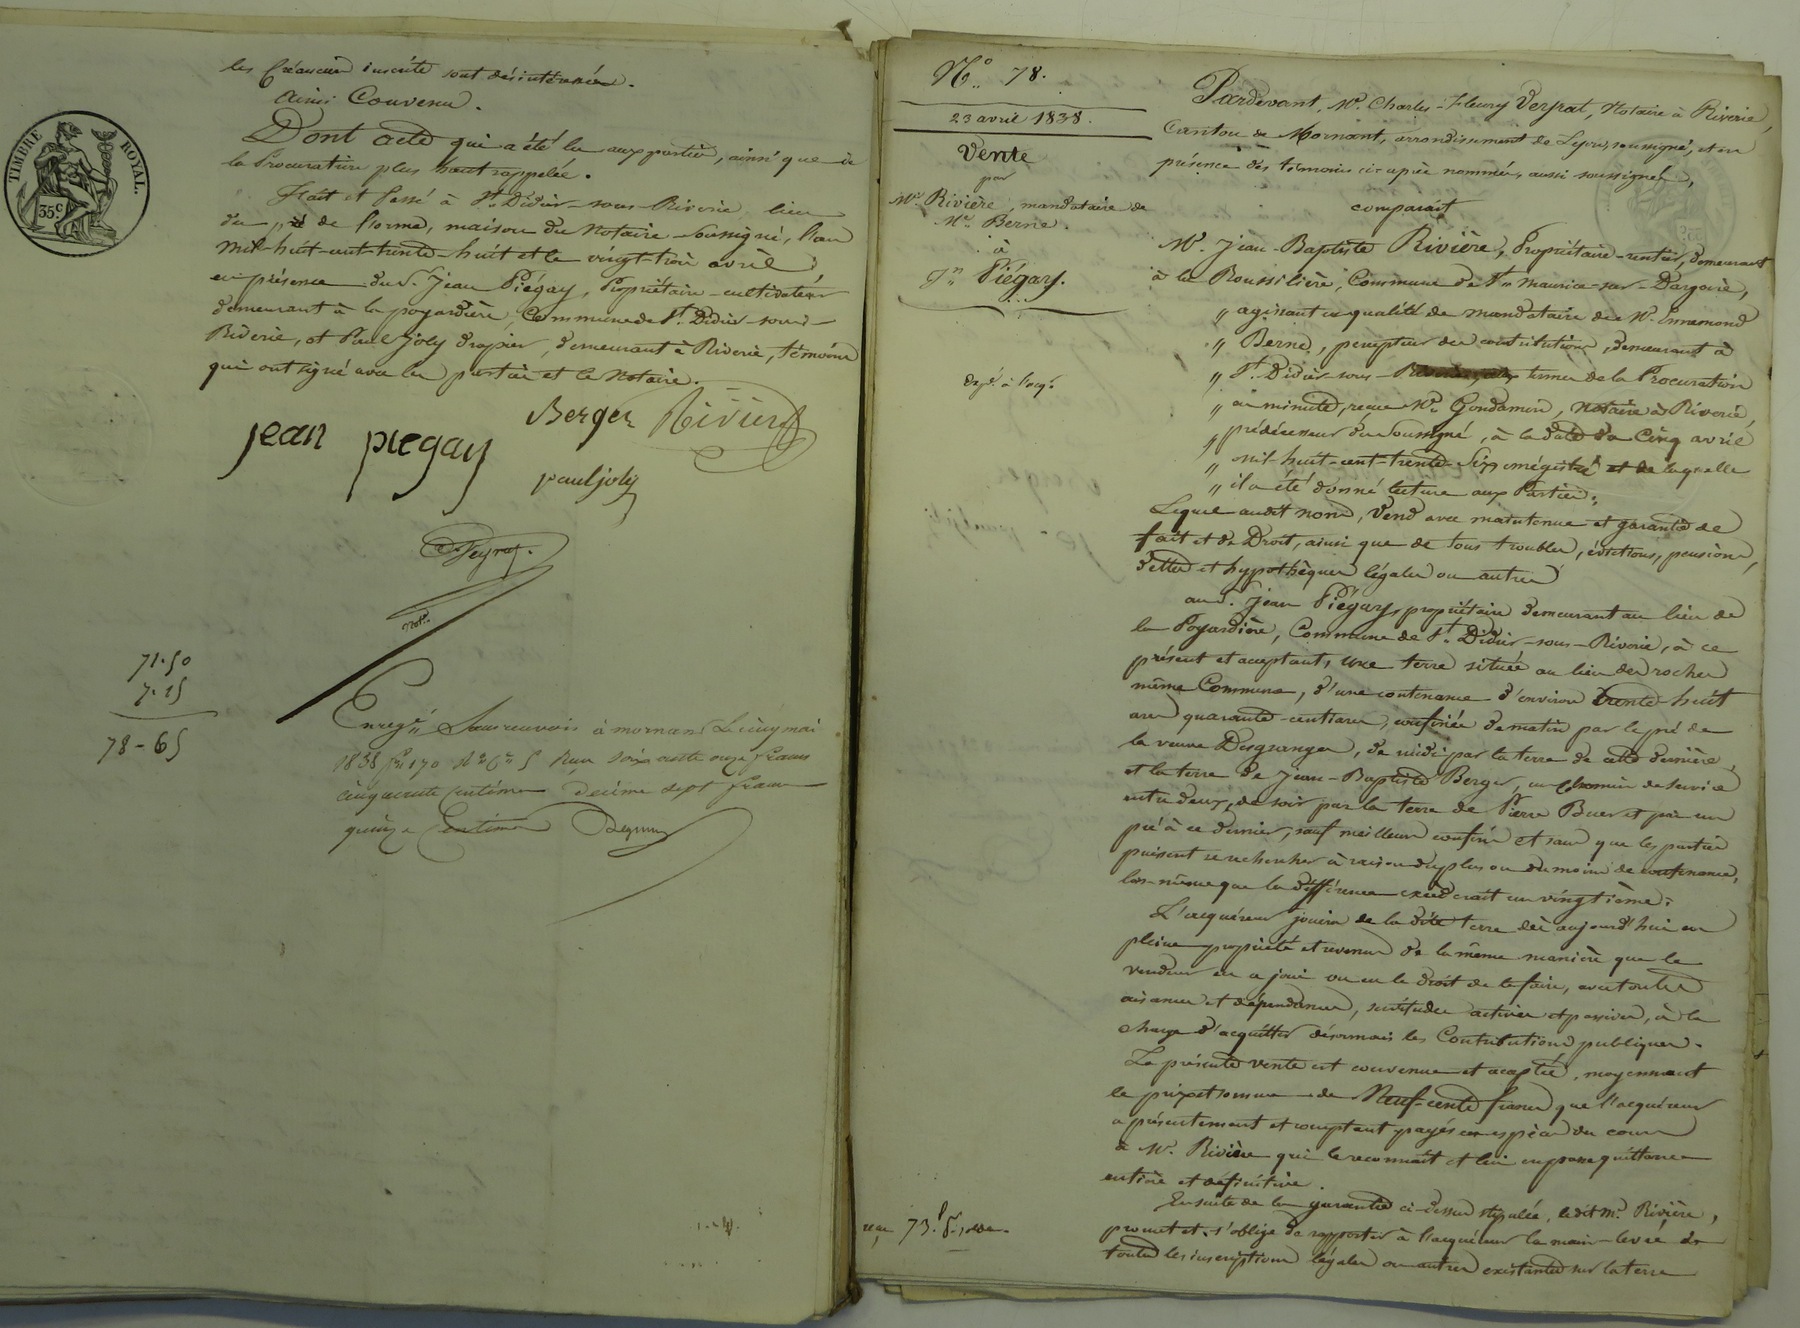 les Créanciers inscrits sont désintéressés.
Ainsi Convenu.
Dont acte qui a été lu aux parties, ainsi que de
la Procuration plus haut rappelée.
Fait et Passé à St. Didier-sous-Riverie, lieu
du de maison du Notaire soussigné, l'an
mil-huit-cent-trente-huit et le vingt-trois avril
en présence du Sr. Jean Piégay, Propriétaire-cultivateur
demeurant à la poyardière, Commune de St. Didier-sous-
Riverie, et Paul Joly drapier, demeurant à Riverie, témoins
qui ont signé avec les parties et le Notaire.
Berger Rivière
jean piegay
paul joly
Veyrat.
Notre.
TIMBRE ROYAL.
35c
71.50
7.15
78-65
Enregré à mornant Le cinq mai
1838 fo 170 Ro Cr 5 Reçu soixante onze francs
cinquante centimes Décime sept francs
quinze Centimes
No. 78.
23 avril 1838.
Vente
par
Mr. Rivière, mandataire de
Mr. Berne.
à
Jn Piégay.
Expé. à l'acq.
reçu 73.f
Pardevant Me. Charles-Fleury Veyrat, Notaire à Riverie,
Canton de Mornant, arrondissement de Lyon, soussigné, et en
présence des témoins ci-après nommés, aussi soussignés,
comparait
Mr. Jean-Baptiste Rivière, Propriétaire-rentier, demeurant
à la Roussilière, Commune de St. Maurice-sur-Dargoire,
„ agissant en qualité de mandataire de Mr. Ennemond
„ Berne, percepteur des contributions, demeurant à
„ St. Didier-sous-Riverie, aux termes de la Procuration
„ en minute, reçue Me. Gondamin, Notaire à Riverie,
„ prédécesseur du Soussigné, à la date du Cinq avril
„ mil-huit-cent-trente-Six, enrégistré et de laquelle
„ il a été donné lecture aux Parties;
Lequel audit nom, Vend avec maintenue et garantie de
fait et de Droit, ainsi que de tous troubles, évictions, pensions,
dettes et hypothèques légales ou autres
au S. Jean Piégay, propriétaire demeurant au lieu de
la Poyardière, Commune de St. Didier-sous-Riverie, à ce
présent et acceptant, une terre située au lieu des rochers
même Commune, d'une contenance d'environ trente-huit
ares quarante-centiares, confinée de matin par le pré de
la veuve Desgranges, de midi par la terre de cette dernière,
et la terre de Jean-Baptiste Berger, un chemin de service
entre deux, de soir par la terre de Pierre et par un
pré à ce dernier, sauf meilleurs confins et sans que les parties
puissent se rechercher à raison du plus ou du moins de contenance,
lors-même que la différence excèderait un vingtième;
L'acquéreur jouira de la dite terre dès aujourd'hui en
pleine propriété et revenus de la même manière que le
vendeur en a joui ou eu le droit de le faire, avec toutes
aisances et dépendances, servitudes actives et passives, à la
charge d'acquitter désormais les Contributions publiques.
La présente vente est convenue et acceptée, moyennant
le prix et somme de Neuf-cents francs que l'acquéreur
a présentement et comptant payés en espèces du cours
à Mr. Rivière qui le reconnait et lui en passe quittance
entière et définitive.
En suite de la garantie ci-dessus stipulée, ledit Mr. Rivière,
promet et s'oblige de rapporter à l'acquéreur la main-levée de
toutes les inscriptions légales ou autres existantes sur la terre